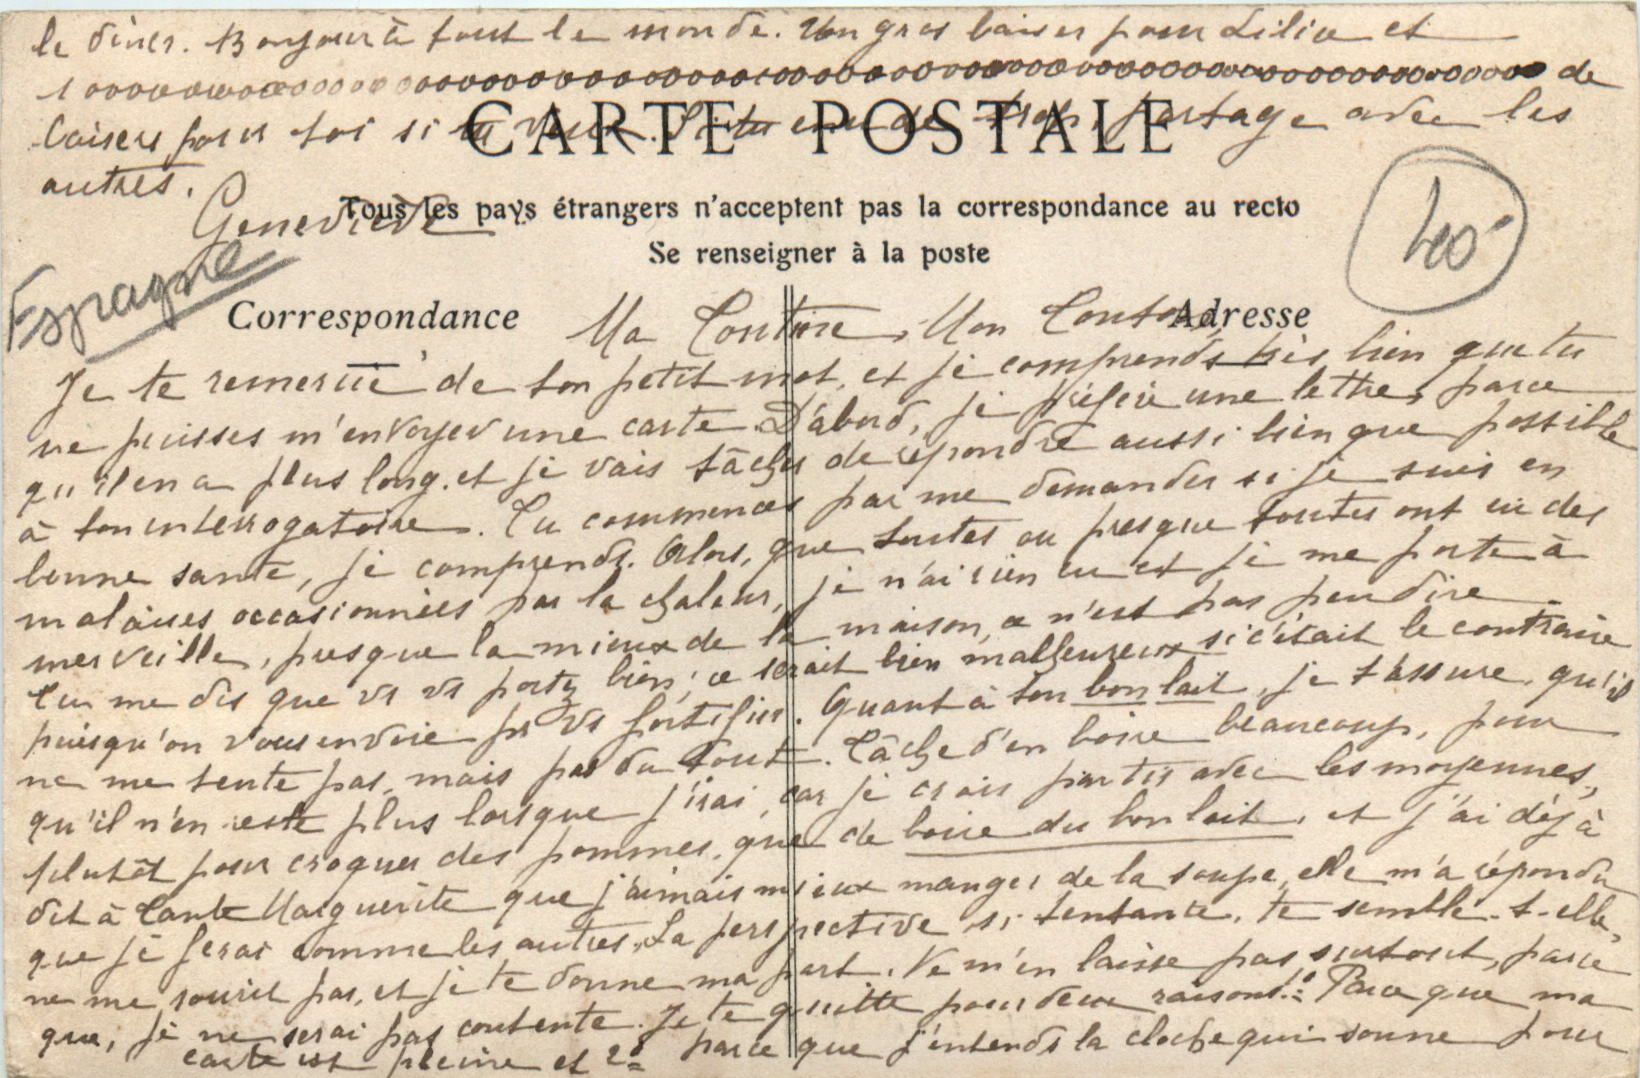 le dîner. Bonjour à tout le monde. Un gros baiser pour Lilie et
1000000000000000000000000000000000000000000000000000000000000000000 de
CARTE POSTALE
baisers pour toi si tu veux. Si tu en as trop, partage avec les
autres.
Geneviève
Tous les pays étrangers n'acceptent pas la correspondance au recto
Se renseigner à la poste
400
Espagne
Correspondance
Adresse
Ma Tontine, Mon Tonton
Je te remercie de ton petit mot, et je comprends très bien que tu
ne puisses m'envoyer une carte. D'abord, je préfère une lettre, parce
qu'il en a plus long. et je vais tâcher de répondre aussi bien que possible
à ton interrogatoire. Tu commences par me demander si je suis en
bonne santé, je comprends. Alors, que toutes ou presque toutes ont eu des
malaises occasionnées par la chaleur, je n'ai rien eu et je me porte à
merveille, presque la mieux de la maison, ce n'est pas peu dire.
Tu me dis que vs vs portez bien; ce serait bien malheureux si c'était le contraire
puisqu'on vous envoie pr vs fortifier. Quant à ton bon lait, je t'assure, qu'il
ne me tente pas, mais pas du tout. Tâche d'en boire beaucoup, pour
qu'il n'en reste plus lorsque j'irai, car je crois partir avec les moyennes,
plutôt pour croquer des pommes, que de boire du bon lait, et j'ai déjà
dit à Tante Marguerite que j'aimais mieux manger de la soupe, elle m'a répondu
que je ferai comme les autres. La perspective si tentante, te semble-t-elle,
ne me sourit pas, et je te donne ma part. Ne m'en laisse pas surtout, parce
que, je ne serai pas contente. Je te quitte pour deux raisons: 1º Parce que ma
carte est pleine et 2º parce que j'entends la cloche qui sonne pour